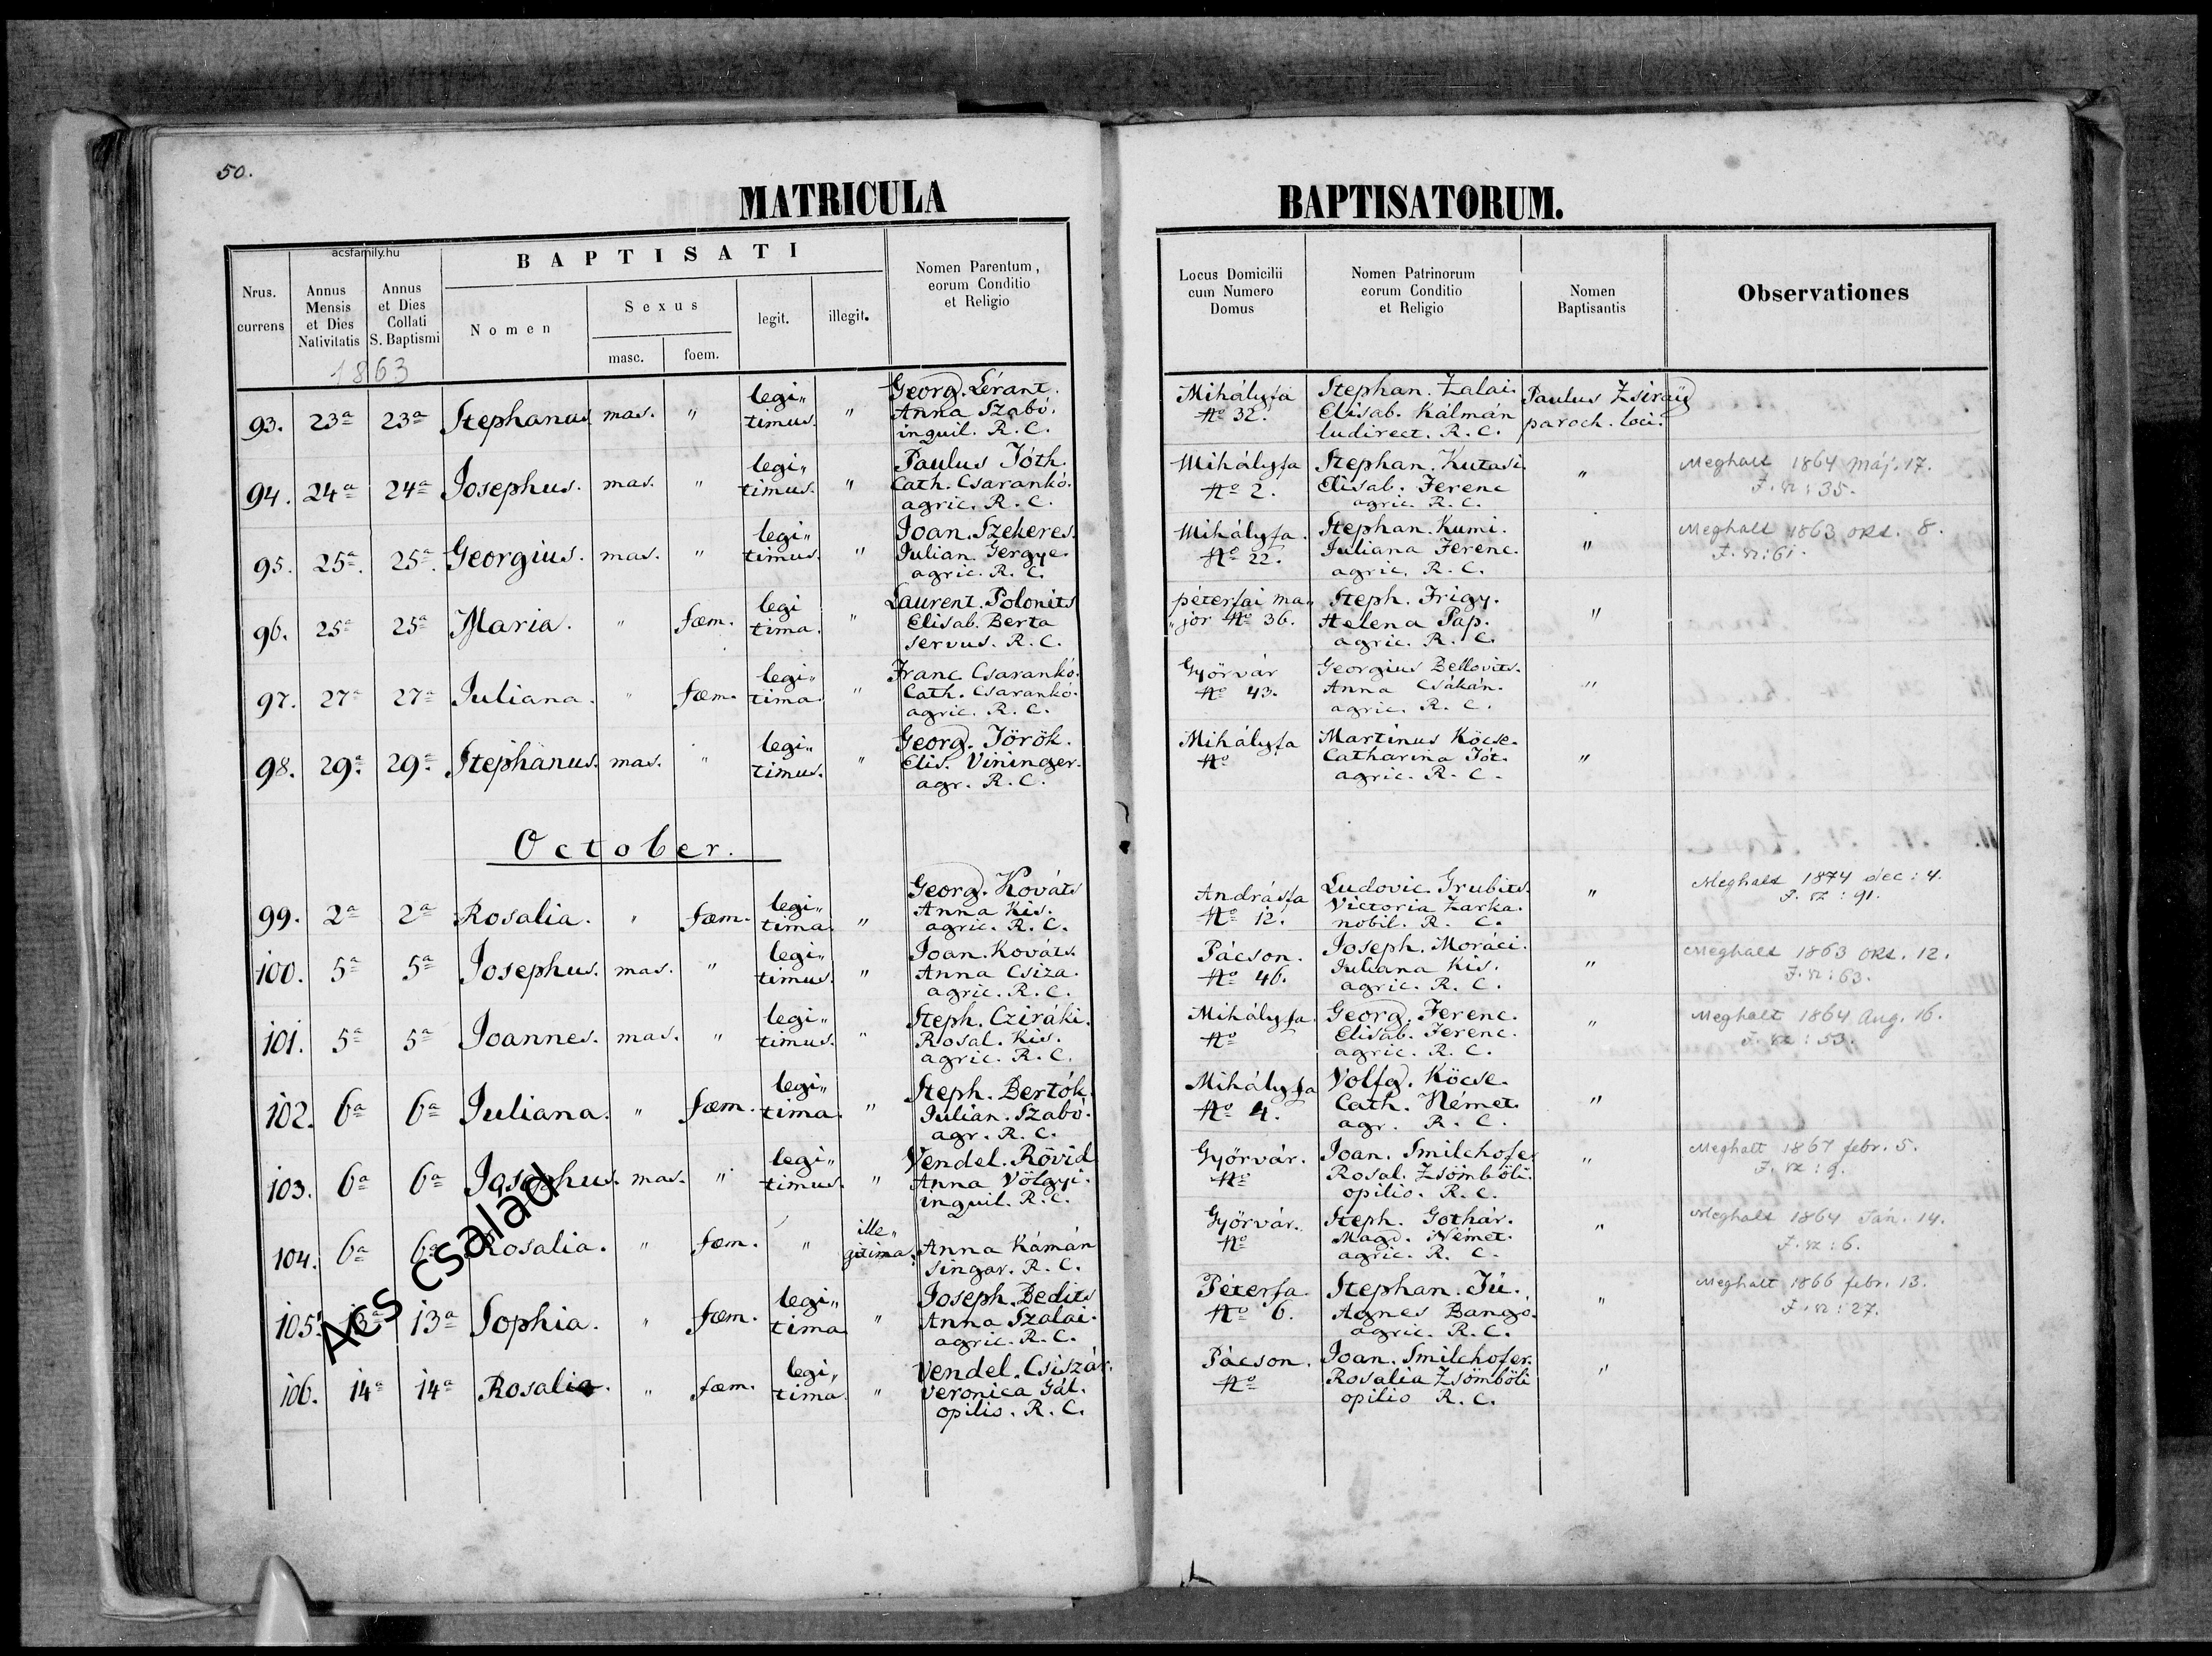 50.
MATRICULA BAPTISATORUM.
acsfamily.hu
Nrus. currens
Annus Mensis et Dies Nativitatis
Annus et Dies Collati S. Baptismi
1863
BAPTISATI
Nomen
Sexus
masc.
foem.
legit.
illegit.
Nomen Parentum, eorum Conditio et Religio
Locus Domicilii cum Numero Domus
Nomen Patrinorum eorum Conditio et Religio
Nomen Baptisantis
Observationes
93. 23a 23a Stephanus mas. " legi„ timus. " Georg. Léránt. Anna Szabó. inquil. R. C. Mihályfa No 32. Stephan. Zalai. Elisab. Kálmán ludirect. R. C. Paulus Zsiray paroch. loci.
94. 24a 24a Josephus. mas. " legi„ timus. " Paulus Tóth. Cath. Csarankó. agric. R. C. Mihályfa No 2. Stephan. Kutasi. Elisab. Ferenc agric. R. C. " Meghalt 1864 máj. 17. F. sz: 35.
95. 25a. 25a. Georgius. mas. " legi„ timus. " Joan. Szekeres. Julian. Gergye. agric. R. C. Mihályfa. No 22. Stephan. Kumi. Juliana Ferenc. agric. R. C. " Meghalt 1863 okt. 8. F. sz: 61.
96. 25a 25a Maria. " fœm. legi tima. " Laurent. Polonits Elisab. Berta servus. R. C. péterfai ma„ „jor No 36. Steph. Frigy. Helena Pap. agric. R. C. "
97. 27a 27a Juliana. " fœm. legi„ tima. " Franc. Csarankó. Cath. Csarankó. agric. R. C. Györvár No 43. Georgius Bellovits. Anna Csákán. agric. R. C. "
98. 29a. 29a. Stephanus. mas. " legi„ timus. " Georg. Török. Elis. Vininger. agr. R. C. Mihályfa No Martinus Köcse. Catharina Tót. agric. R. C. "
October.
99. 2a 2a Rosalia. " fœm. legi„ tima. " Georg. Kováts Anna Kis. agric. R. C. Andrásfa No 12. Ludovic. Grubits. Victoria Zarka. nobil. R. C. " Meghalt 1874 dec: 4. F. sz: 91.
100. 5a 5a Josephus. mas. " legi„ timus. " Joan. Kováts. Anna Csiza. agric. R. C. Pácson. No 46. Joseph. Moráci. Juliana Kis. agric. R. C. " Meghalt 1863 okt. 12. F. sz: 63.
101. 5a 5a Joannes. mas. " legi„ timus. " Steph. Cziráki. Rosal. Kis. agric. R. C. Mihályfa. No Georg. Ferenc. Elisab. Ferenc. agric. R. C. " Meghalt 1864 Aug. 16. F. sz: 53.
102. 6a 6a Juliana. " fœm. legi„ tima. " Steph. Bertók. Julian. Szabó. agr. R. C. Mihályfa No 4. Volfg. Köcse. Cath. Német. agr. R. C. "
103. 6a 6a Josephus. mas. " legi„ timus. " Vendel. Rövid Anna Völgyi. inquil. R. C. Györvár. No Joan. Smilchofer Rosal. Zsömböli. opilio. R. C. " Meghalt 1867 febr. 5. F. sz: 9.
104. 6a 6a Rosalia. " fœm. " ille„ gitima. Anna Kámán singar. R. C. Györvár. No Steph. Gothár. Magd. Német. agric. R. C. " Meghalt 1864 Ján. 14. F. sz: 6.
105. 13a 13a Sophia. " fœm. legi„ tima " Joseph. Bedits Anna Szalai. agric. R. C. Péterfa. No 6. Stephan. Tü. Agnes Bangó. agric. R. C. " Meghalt 1866 febr. 13. F. sz: 27.
106. 14a 14a Rosalia. " fœm. legi„ tima. " Vendel. Csiszár. Veronica Gál. opilio. R. C. Pácson. No Joan. Smilchofer. Rosalia Zsömböli opilio R. C. "
Acs csalad